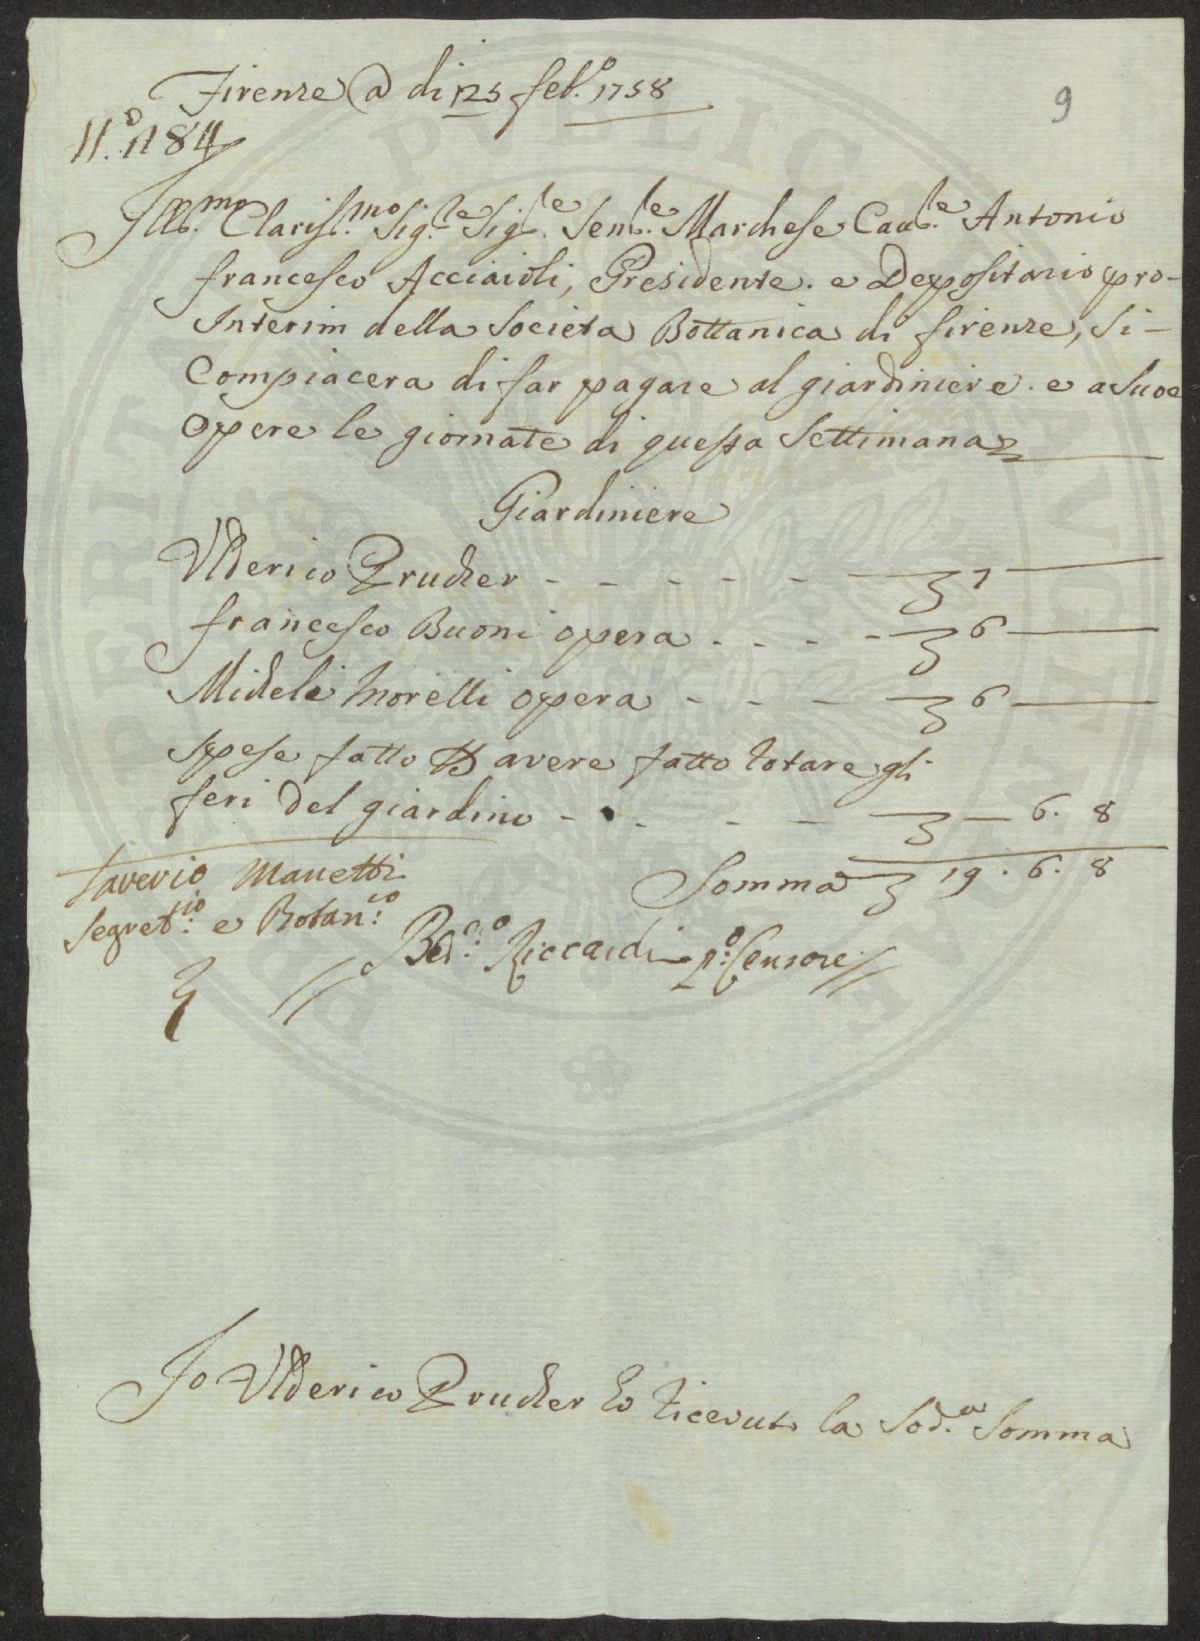 Firenze a di 25 feb.º 1758
9
N.º 1184
Ill.mo Claris.mo Sig.re Sig.re Sen.re Marchese Cau.re Antonio
francesco Acciaioli, Presidente. e Depositario pro-
Interim della Societa Bottanica di firenze, Si-
Compiacera di far pagare al giardiniere. e a Suoe
opere le giornate di questa Settimana
Giardiniere
Ulderico Prucher - - - - - - 7
francesco Buoni opera - - - - 6
Michele Morelli opera - - - 6
Spese fatto avere fatto Rotare gli
feri del giardino - - - - - 6. 8
Somma 19. 6. 8
Saverio Manetti
Segret.rio e Botan.co
Bed.º Riccardi p.º Censore
Jo Ulderico Prucher ho Riceuuto la Sod.a Somma